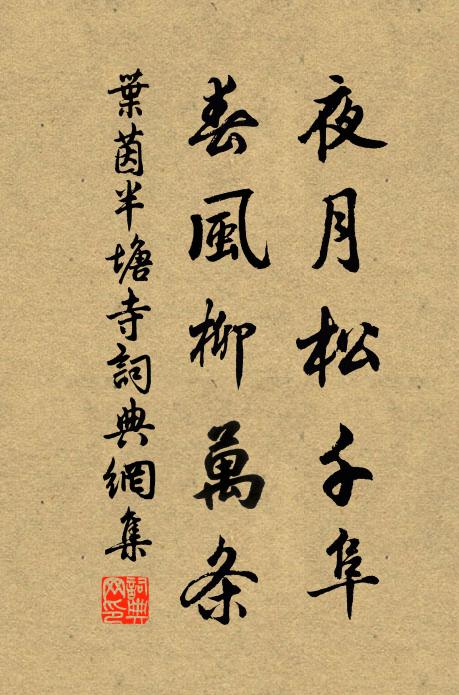 夜月松千阜
春風柳萬条
葉茵半塘寺詞典網集
詞典网印